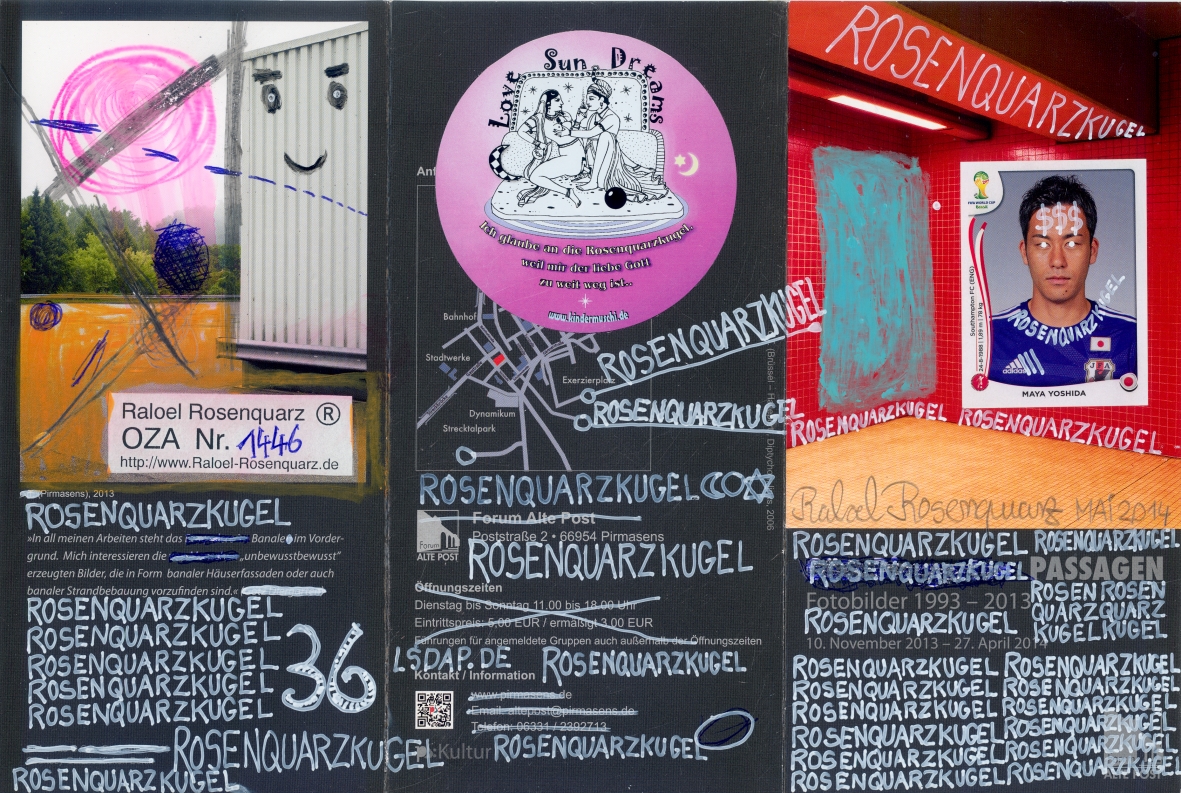 Raloel Rosenquarz ®
OZA Nr. 1446
http://www.Raloel-Rosenquarz.de
(Pirmasens), 2013
ROSENQUARZKUGEL
»In all meinen Arbeiten steht das Banale im Vorder-
grund. Mich interessieren die „unbewusstbewusst"
erzeugten Bilder, die in Form banaler Häuserfassaden oder auch
banaler Strandbebauung vorzufinden sind.«
ROSENQUARZKUGEL
ROSENQUARZKUGEL
ROSENQUARZKUGEL
ROSENQUARZKUGEL
ROSENQUARZKUGEL
36
ROSENQUARZKUGEL
ROSENQUARZKUGEL
Love Sun Dreams
Ich glaube an die Rosenquarzkugel,
weil mir der liebe Gott
zu weit weg ist..
www.kindermuschi.de
Anf
Bahnhof
Stadtwerke
Exerzierplatz
Dynamikum
Strecktalpark
ROSENQUARZKUGEL
ROSENQUARZKUGEL
ROSENQUARZKUGEL
Forum Alte Post
Poststraße 2 • 66954 Pirmasens
Forum
ALTE POST
ROSENQUARZKUGEL
Öffnungszeiten
Dienstag bis Sonntag 11.00 bis 18.00 Uhr
Eintrittspreis: 5,00 EUR / ermäßigt 3,00 EUR
Führungen für angemeldete Gruppen auch außerhalb der Öffnungszeiten
LSDAP.DE ROSENQUARZKUGEL
Kontakt / Information
www.pirmasens.de
Email: altepost@pirmasens.de
Telefon: 06331 / 2392713
Kultur
ROSENQUARZKUGEL
ROSENQUARZKUGEL
FIFA WORLD CUP
Brasil
$$$
Southampton FC (ENG)
24-8-1988 | 1,89 m | 78 kg
ROSENQUARZKUGEL
adidas
JFA
MAYA YOSHIDA
ROSENQUARZKUGEL
ROSENQUARZKUGEL
Raloel Rosenquarz MAI 2014
ROSENQUARZKUGEL ROSENQUARZKUGEL
ROSENQUARZKUGEL
PASSAGEN
Fotobilder 1993 – 2013
ROSEN ROSEN
QUARZ QUARZ
KUGEL KUGEL
ROSENQUARZKUGEL
10. November 2013 – 27. April 2014
ROSENQUARZKUGEL ROSENQUARZKUGEL
ROSENQUARZKUGEL ROSENQUARZKUGEL
ROSENQUARZKUGEL ROSENQUARZKUGEL
ROSENQUARZKUGEL ROSENQUARZKUGEL
ROSENQUARZKUGEL ROSENQUARZKUGEL
ROSENQUARZKUGEL ROSENQUARZKUGEL
ALTE POST